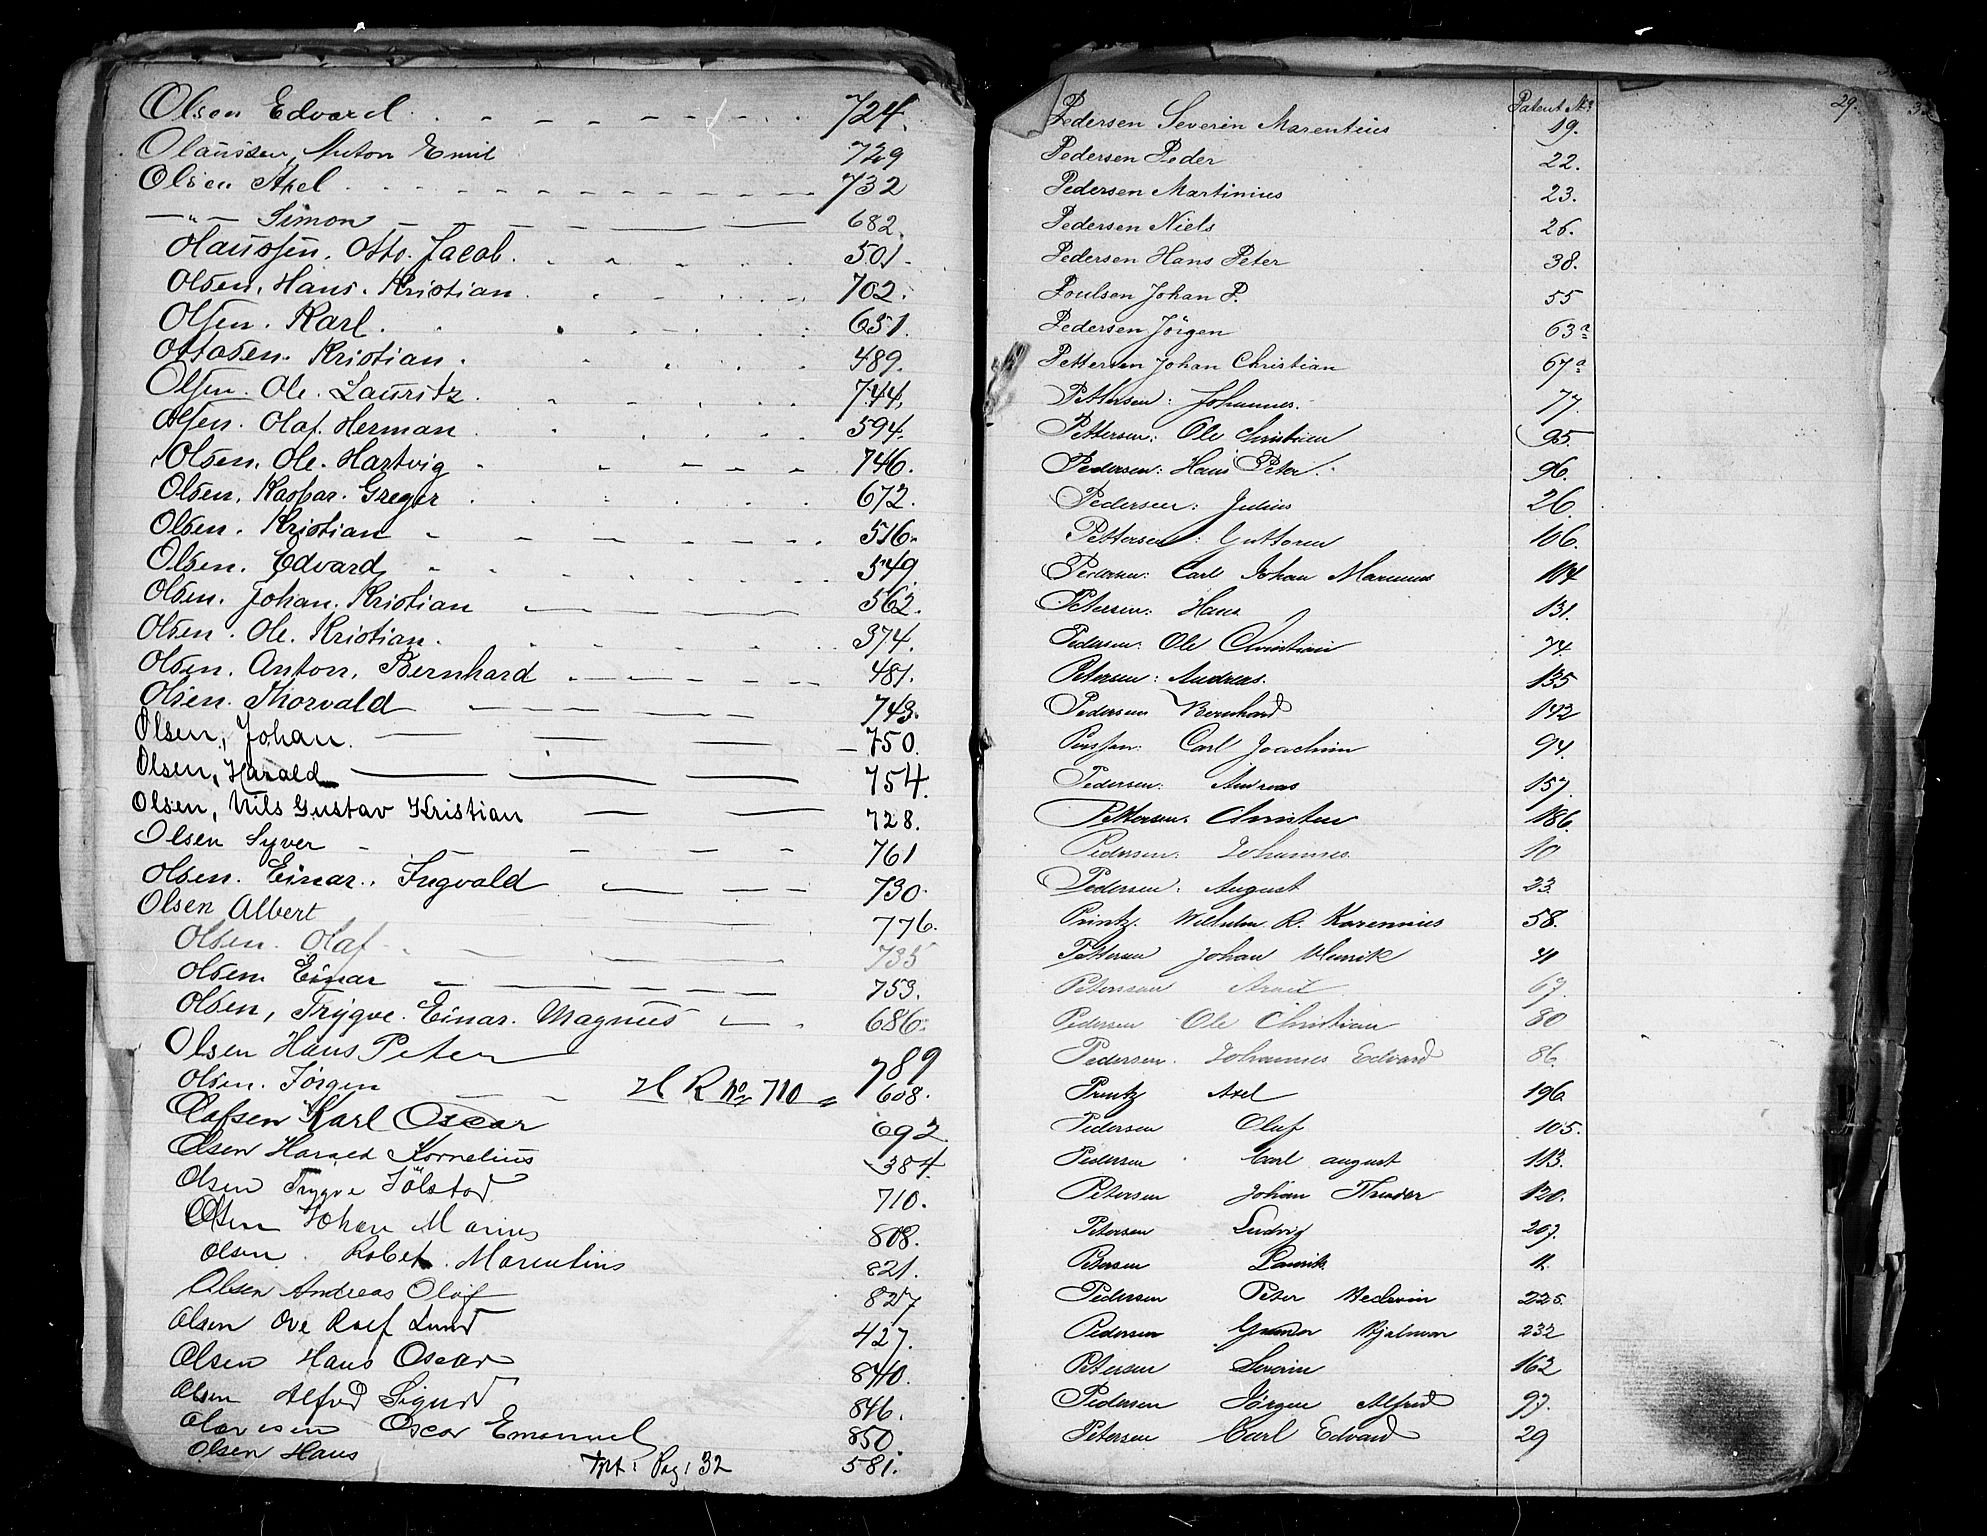 Olsen Edvard 724.
Olaussen, Anton Emil 729
Olsen Axel 732
—"— Simon 682.
Olaussen. Otto. Jacob. 501.
Olsen. Hans. Kristian. 702.
Olsen. Karl. 651.
Ottosen. Kristian. 489.
Olsen. Ole. Lauritz. 744.
Olsen. Olaf. Herman 594.
Olsen. Ole. Hartvig 746.
Olsen. Kaspar. Greger 672.
Olsen. Kristian 516.
Olsen. Edvard 549.
Olsen. Johan. Kristian 562.
Olsen. Ole. Kristian. 374.
Olsen. Anton. Bernhard 481.
Olsen. Thorvald 743.
Olsen, Johan. 750.
Olsen, Harald 754.
Olsen, Nils Gustav Kristian 728.
Olsen Syver 761
Olsen. Einar. Ingvald 730.
Olsen Albert 776.
Olsen. Olaf 735
Olsen Einar 753.
Olsen, Trygve. Einar. Magnus 686.
Olsen Hans Peter 789
Olsen. Jørgen H R No 710 = 608.
Olafsen Karl Oscar 692
Olsen Harald Kornelius 384
Olsen Trygve Jölstad 710.
Olsen Johan Marius 808.
Olsen. Robert. Marentius 821.
Olsen Andreas Olaf 827
Olsen Ove Rolf Lund 427.
Olsen Hans Oscar 840.
Olsen Alfred Sigurd 846.
Oscar Emanuel 850.
Olsen Hans 581.
Pag: 32
29.
Patent No.
Pedersen Severin Marentius 19.
Pedersen Peder 22.
Pedersen Martinius 23.
Pedersen Niels 26.
Pedersen Hans Peter 38.
Poulsen Johan P. 55
Pedersen Jörgen 63a
Pettersen Johan Christian 67a
Pettersen: Johannes. 77.
Pettersen: Ole Christian 95.
Pedersen: Hans Peter. 96.
Pedersen: Julius 26.
Pettersen: Guttorm 106.
Pedersen: Carl Johan Marinus 104
Petersen: Hans 131.
Pedersen: Ole Christian 74.
Petersen: Andreas. 135
Pedersen Bernhard 142
Carl Joachim 94.
Pedersen: Andreas 157.
Pettersen. Christen 186.
Pedersen: Johannes. 10
Pedersen: August 23.
Printz. Wilhelm R. 58.
Pettersen Johan Henrik 41
Petersen 67.
Pedersen Ole Christian 80
Pedersen. Johannes Edvard 86.
Printz Axel 196.
Pedersen Oluf 105.
Pedersen Carl august 113.
Petersen Johan 120.
Petersen Ludvig 207.
11.
Pedersen Peter 225.
Pedersen Hjalmar 232
Petersen Severin 162
Pedersen Jørgen Alfred 97.
Petersen Carl Edvard 29